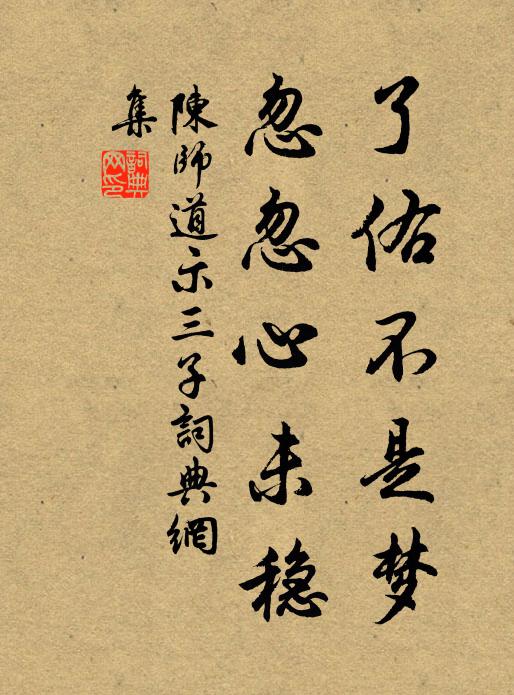 了佑不是梦
忽忽心未稳
陳師道示三子詞典網
集
詞典网印